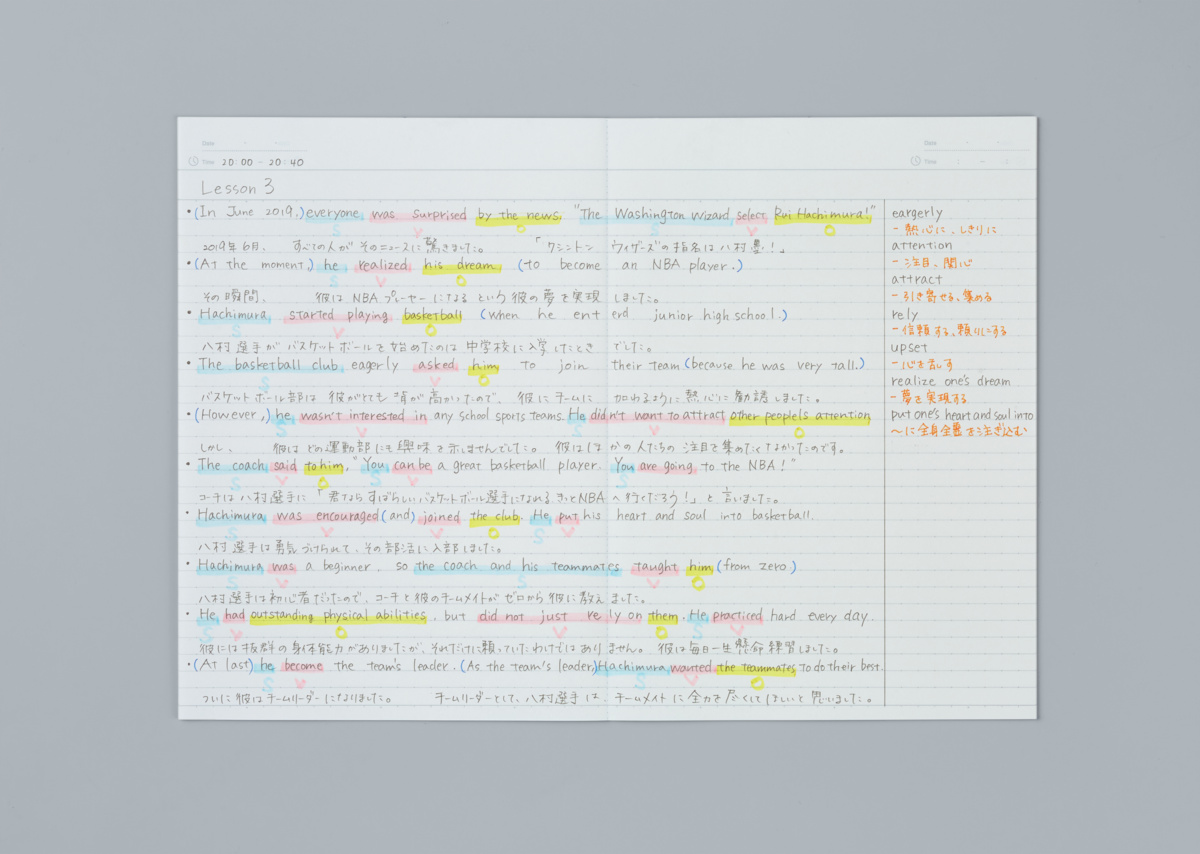 Date
Date
Time 20:00 - 20:40
Time : - :
Lesson 3
• (In June 2019,) everyone was surprised by the news, "The Washington Wizard select Rui Hachimura!"
S V O S V O
2019年6月、 すべての人がそのニュースに驚きました。 「ワシントン ウィザーズの指名は八村塁！」
• (At the moment,) he realized his dream (to become an NBA player.)
S V O
その瞬間、 彼はNBAプレーヤーになるという彼の夢を実現しました。
• Hachimura started playing basketball (when he enterd junior high school.)
S V O
八村選手がバスケットボールを始めたのは中学校に入学したときでした。
• The basketball club eagerly asked him to join their team (because he was very tall.)
S V O
バスケットボール部は彼がとても背が高かったので、彼にチームに加わるように熱心に勧誘しました。
• (However,) he wasn't interested in any school sports teams. He didn't want to attract other people's attention
S V S V O
しかし、 彼はどの運動部にも興味を示しませんでした。 彼はほかの人たちの注目を集めたくなかったのです。
• The coach said to him, "You can be a great basketball player. You are going to the NBA!"
S V O S V S V
コーチは八村選手に「君ならすばらしいバスケットボール選手になれる。きっとNBAへ行くだろう！」と言いました。
• Hachimura was encouraged (and) joined the club. He put his heart and soul into basketball.
S V V O S V
八村選手は勇気づけられて、その部活に入部しました。
• Hachimura was a beginner, so the coach and his teammates taught him (from zero.)
S V S V O
八村選手は初心者だったので、コーチと彼のチームメイトがゼロから彼に教えました。
• He had outstanding physical abilities, but did not just rely on them. He practiced hard every day.
S V O V O S V
彼には抜群の身体能力がありましたが、それだけに頼っていたわけではありません。 彼は毎日一生懸命練習しました。
• (At last) he become the team's leader. (As the team's leader,) Hachimura wanted the teammates to do their best.
S V S V O
ついに彼はチームリーダーになりました。 チームリーダーとして、八村選手は、チームメイトに全力を尽くしてほしいと思いました。
eargerly
- 熱心に、しきりに
attention
- 注目、関心
attract
- 引き寄せる、集める
rely
- 信頼する、頼りにする
upset
- 心を乱す
realize one's dream
- 夢を実現する
put one's heart and soul into
〜に全身全霊を注ぎ込む